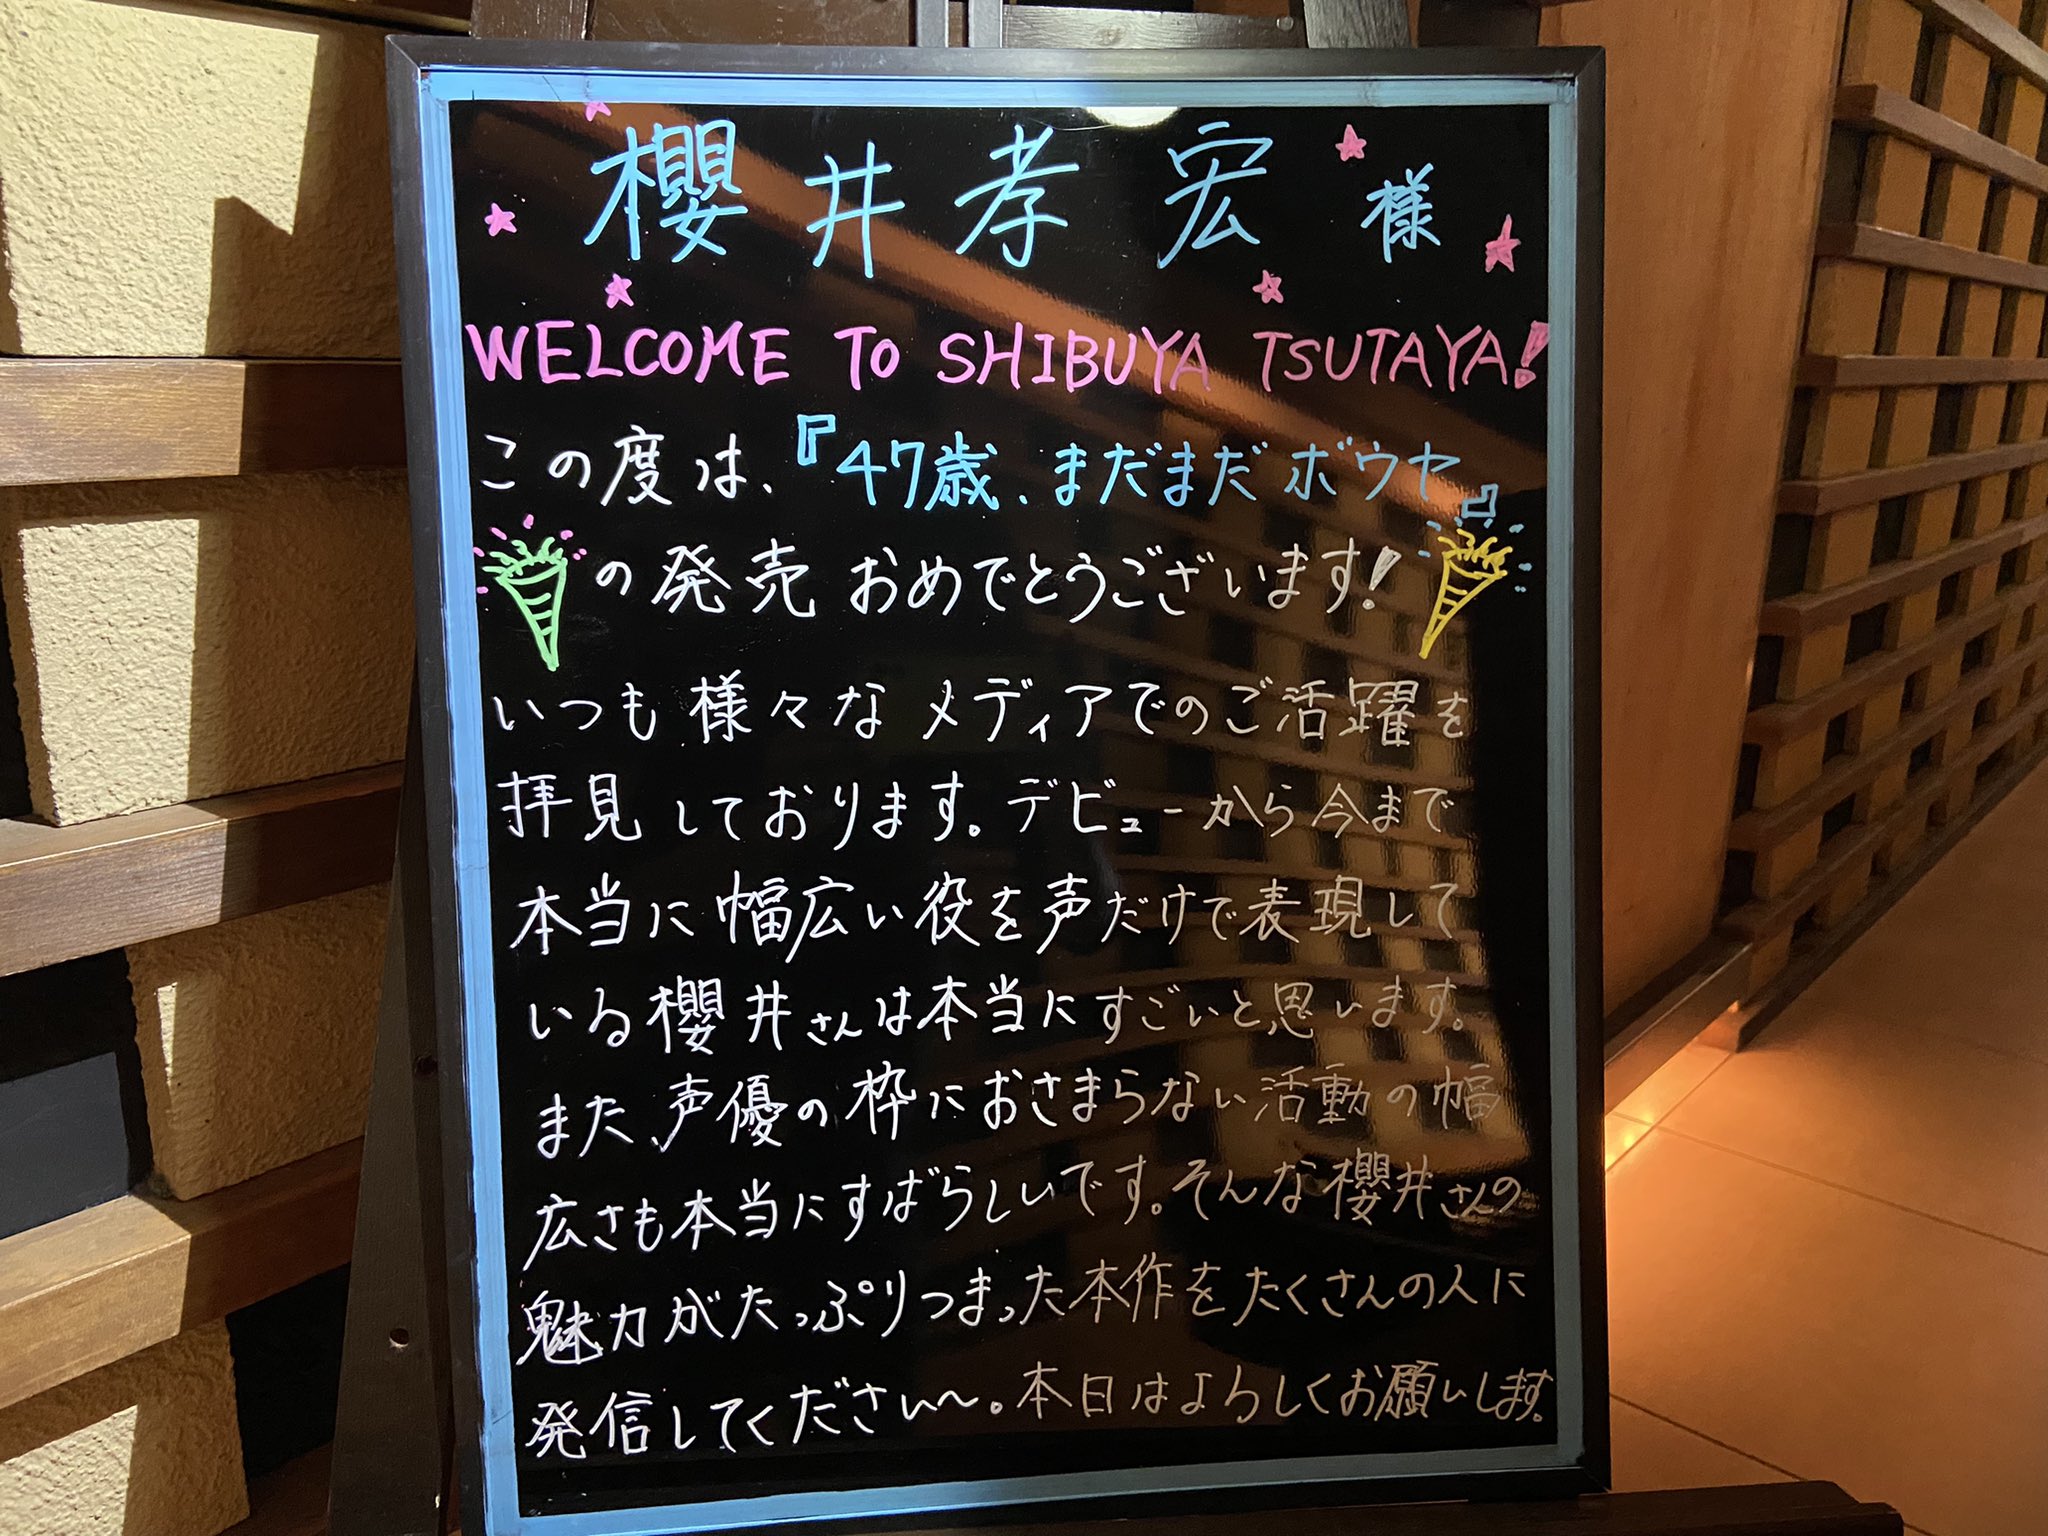 櫻井孝宏 様
WELCOME TO SHIBUYA TSUTAYA!
この度は、『47歳、まだまだボウヤ』
の発売おめでとうございます!
いつも様々なメディアでのご活躍を
拝見しております。デビューから今まで
本当に幅広い役を声だけで表現して
いる櫻井さんは本当にすごいと思います。
また、声優の枠におさまらない活動の幅
広さも本当にすばらしいです。そんな櫻井さんの
魅力がたっぷりつまった本作をたくさんの人に
発信してください〜。本日はよろしくお願いします。